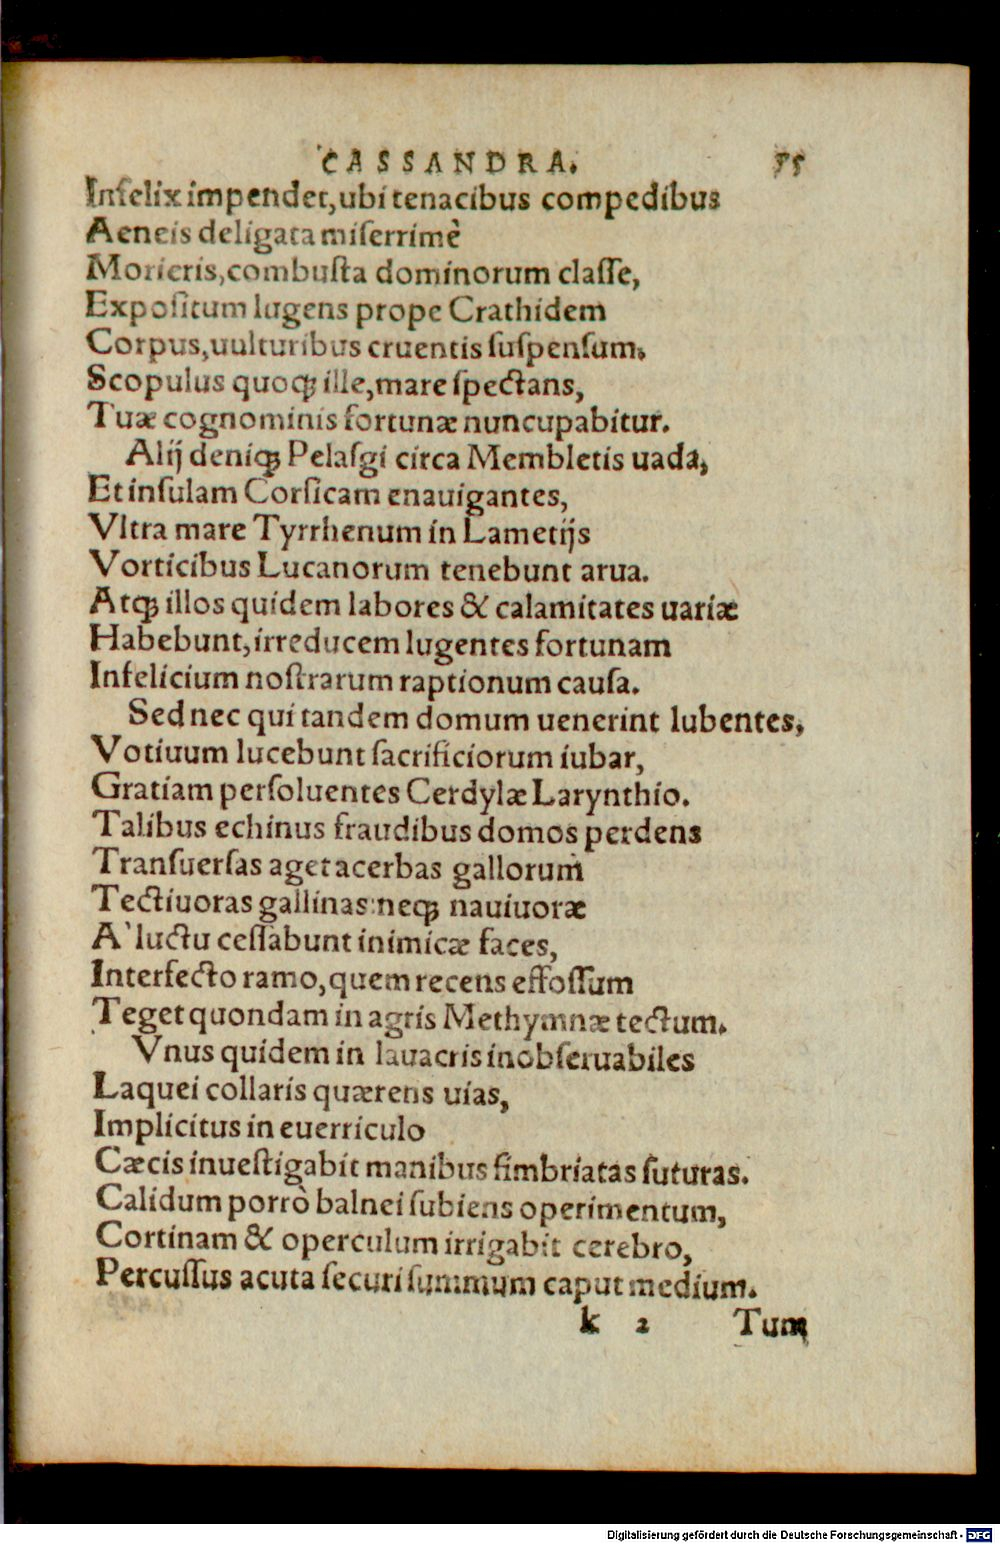 CASSANDRA. 75
Infelix impendet, ubi tenacibus compedibus
Aeneis deligata miserrimè
Morieris, combusta dominorum classe,
Expositum lugens prope Crathidem
Corpus, uulturibus cruentis suspensum.
Scopulus quoqꝫ ille, mare spectans,
Tuæ cognominis fortunæ nuncupabitur.
Alij deniqꝫ Pelasgi circa Membletis uada,
Et insulam Corsicam enauigantes,
Vltra mare Tyrrhenum in Lametijs
Vorticibus Lucanorum tenebunt arua.
Atqꝫ illos quidem labores & calamitates uariæ
Habebunt, irreducem lugentes fortunam
Infelicium nostrarum raptionum causa.
Sed nec qui tandem domum uenerint lubentes,
Votiuum lucebunt sacrificiorum iubar,
Gratiam persoluentes Cerdylæ Larynthio.
Talibus echinus fraudibus domos perdens
Transuersas aget acerbas gallorum
Tectiuoras gallinas: neqꝫ nauiuoræ
A' luctu cessabunt inimicæ faces,
Interfecto ramo, quem recens effossum
Teget quondam in agris Methymnæ tectum.
Vnus quidem in lauacris inobseruabiles
Laquei collaris quærens uias,
Implicitus in euerriculo
Cæcis inuestigabit manibus fimbriatas suturas.
Calidum porrò balnei subiens operimentum,
Cortinam & operculum irrigabit cerebro,
Percussus acuta securi summum caput medium.
k 2 Tum
Digitalisierung gefördert durch die Deutsche Forschungsgemeinschaft - DFG